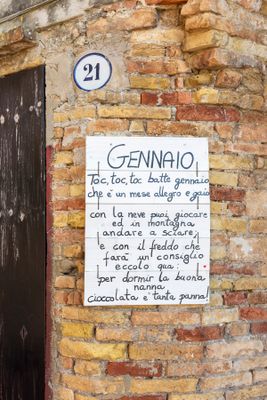 21
GENNAIO
Toc, toc, toc batte gennaio
che è un mese allegro e gaio
con la neve puoi giocare
ed in montagna
andare a sciare,
e con il freddo che
farà un consiglio
eccolo qua:
per dormir la buona
nanna
cioccolata e tanta panna!